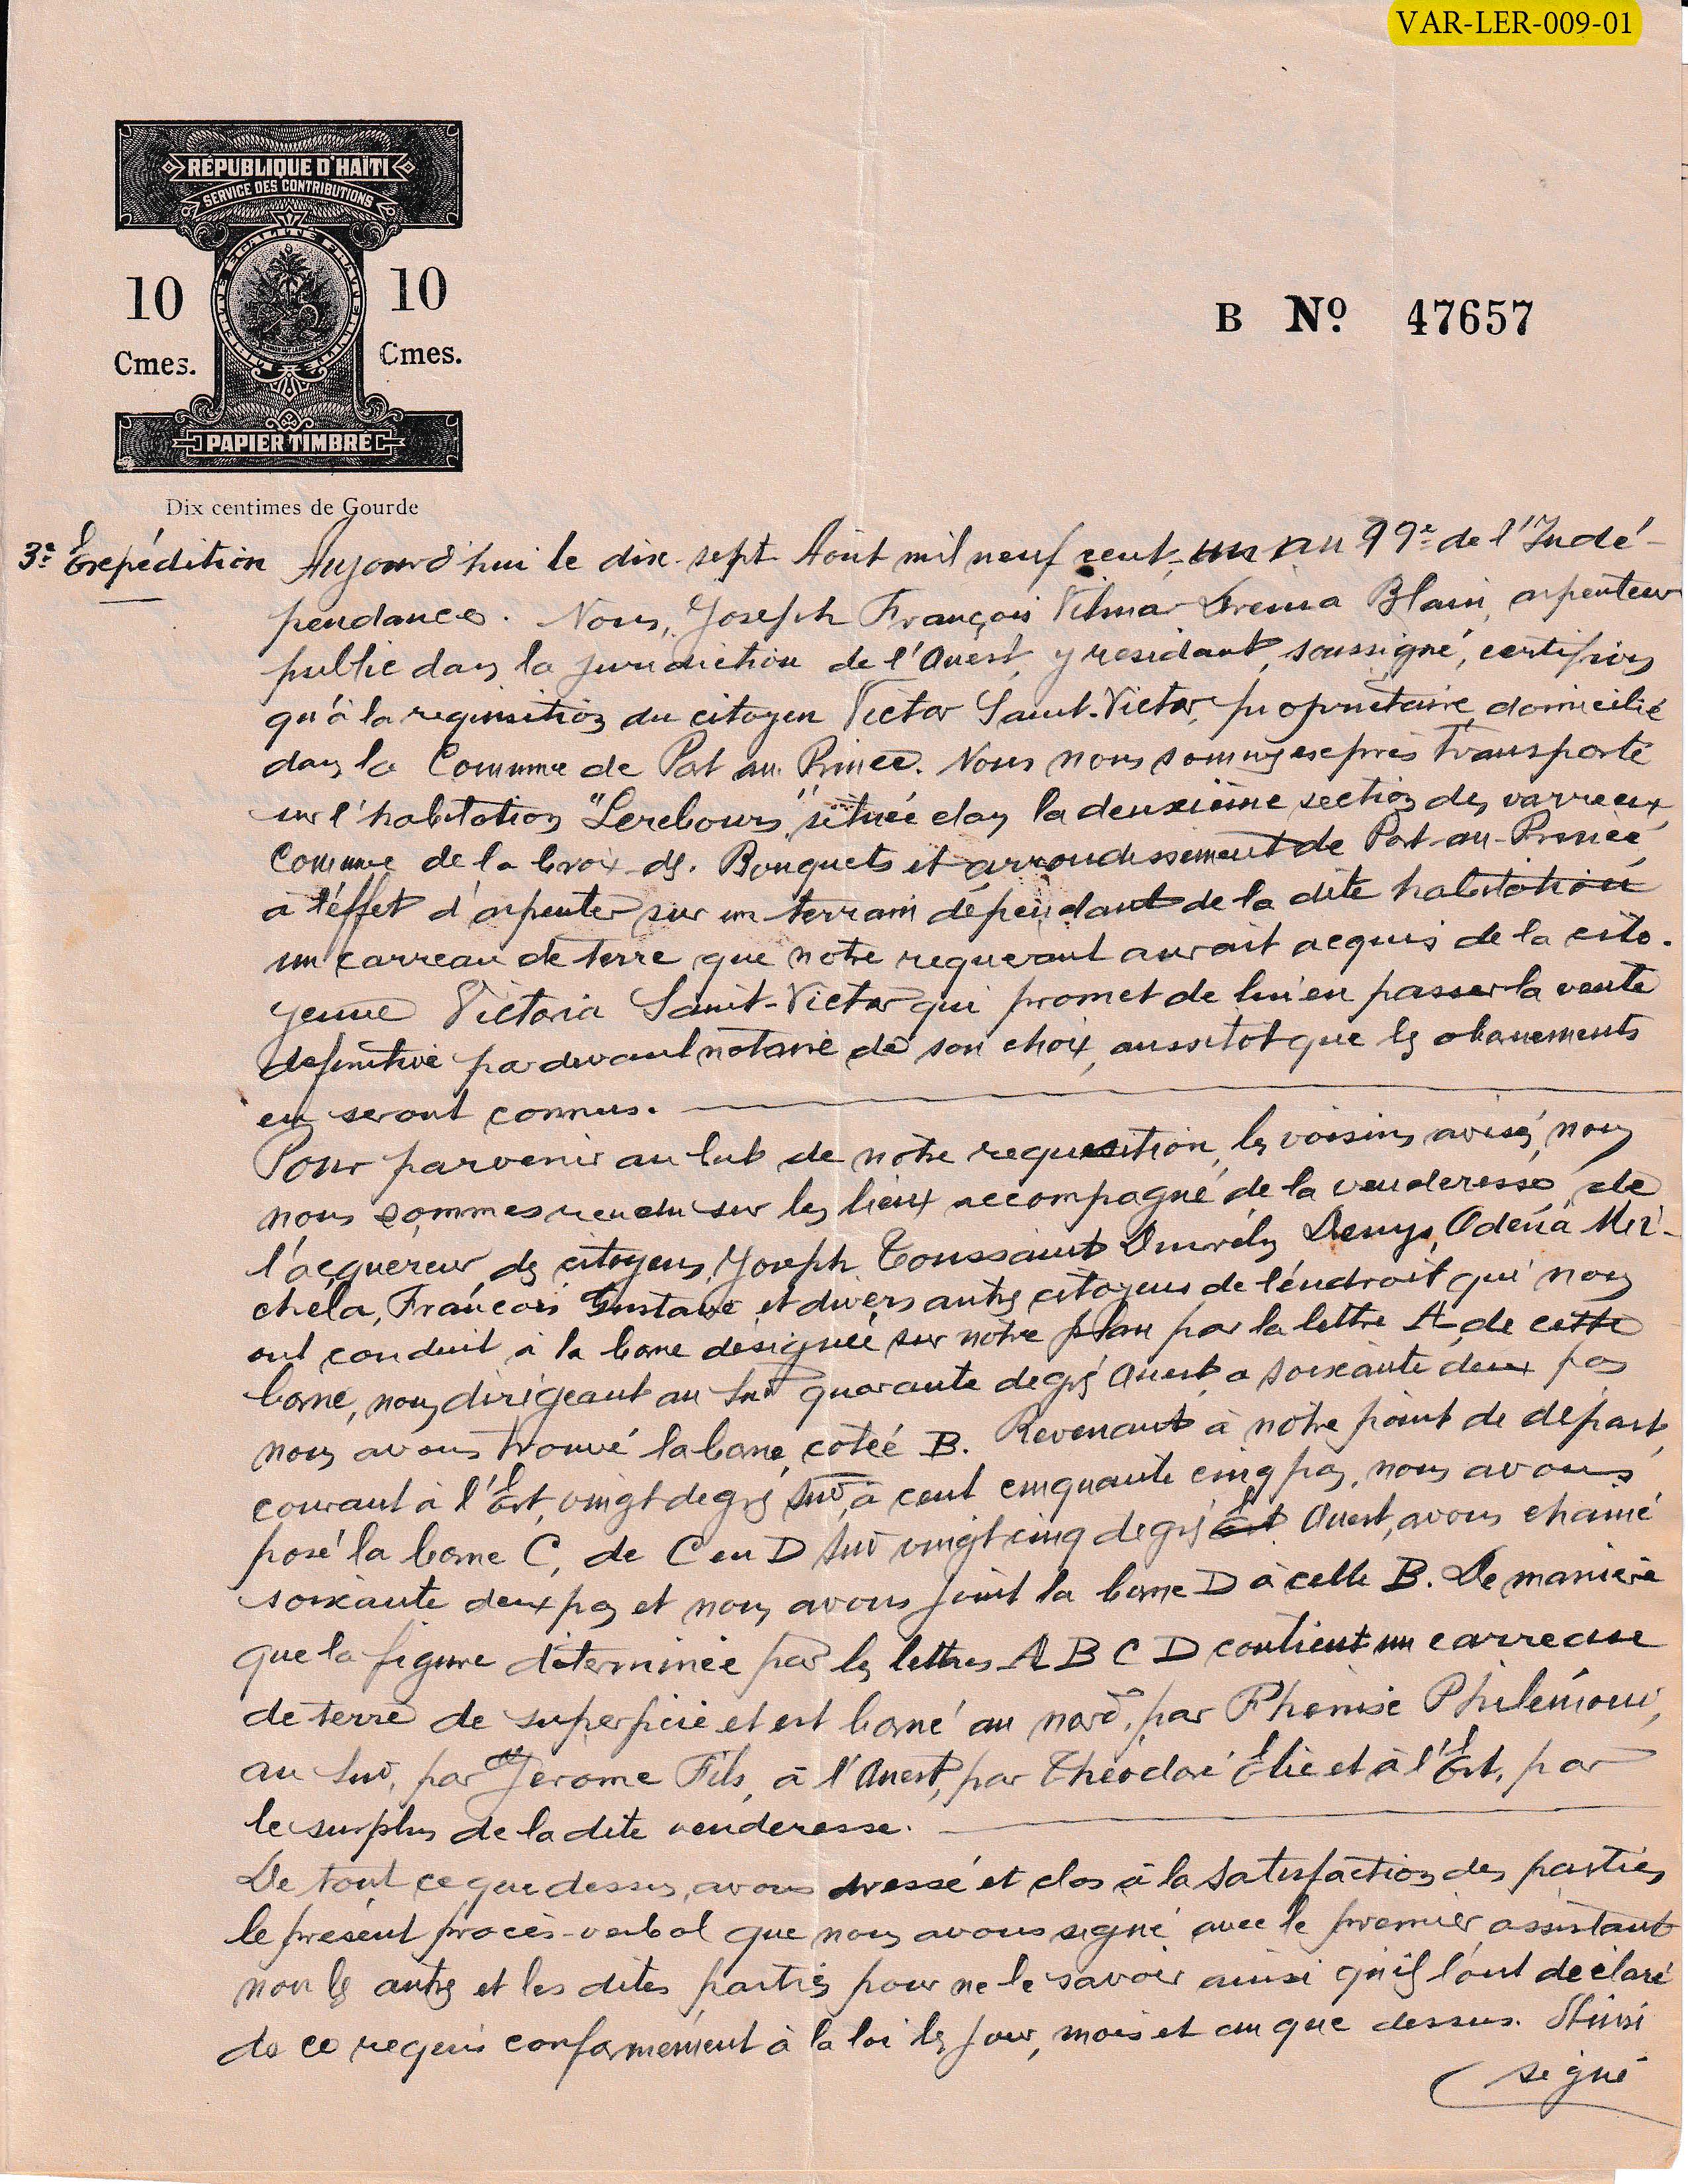 VAR-LER-009-01
RÉPUBLIQUE D'HAÏTI
SERVICE DES CONTRIBUTIONS
10 10
Cmes. Cmes.
B Nº 47657
PAPIER TIMBRÉ
Dix centimes de Gourde
3e Expédition Aujourd'hui le dix-sept Août mil neuf cent-un an 99e de l'Indé-
pendance. Nous, Joseph François Vilmar Blain, arpenteur
public dans la juridiction de l'Ouest, y residant, soussigné, certifions
qu'à la requisition du citoyen Victor Saint-Victor, propriétaire domicilié
dans la Commune de Port au Prince. Nous nous sommes exprès transporté
sur l'habitation "Lerebours", située dans la deuxième section des varreux,
Commune de la Croix des Bouquets et arrondissement de Port-au-Prince
à l'éffet d'arpenter sur un terrain dépendant de la dite habitation
un carreau de terre que notre requerant aurait acquis de la cito-
yenne Victoria Saint-Victor qui promet de lui en passer la vente
définitive pardevant notaire de son choix, aussitot que les abanements
en seront connus.
Pour parvenir au but de notre requesition, les voisins avisés, nous
nous sommes rendu sur les lieux accompagné de la venderesse, de
l'acquereur, des citoyens Joseph Toussaint Denys, Odéna Mi-
chéla, François Gustave et divers autres citoyens de l'éndroit qui nous
ont conduit à la borne désignée sur notre plan par la lettre A, de cette
borne, nous dirigeant au Sud quarante degrés Ouest, a soixante deux pas
nous avons trouvé la borne, cotée B. Revenant à notre point de départ,
courant à l'Est, vingt degrés Sud, à cent cinquante cinq pas, nous avons
posé la borne C, de C en D Sud vingt cinq degrés Est Ouest, avons chainé
soixante deux pas et nous avons joint la borne D à celle B. De manière
que la figure déterminée par les lettres A B C D contient un carreau
de terre de superficie et est borné au nord, par Phenise Philémon,
au Sud, par Jerome Fils, à l'Ouest, par Théodore Élie et à l'Est, par
le surplus de la dite venderesse.
De tout ce que dessus, avons dressé et clos à la satisfaction des parties,
le présent procès-verbal que nous avons signé avec le premier assistant
non les autres et les dites parties pour ne le savoir ainsi qu'ils l'ont déclaré
de ce requis conformément à la loi les jour, mois et an que dessus. Ainsi
signé